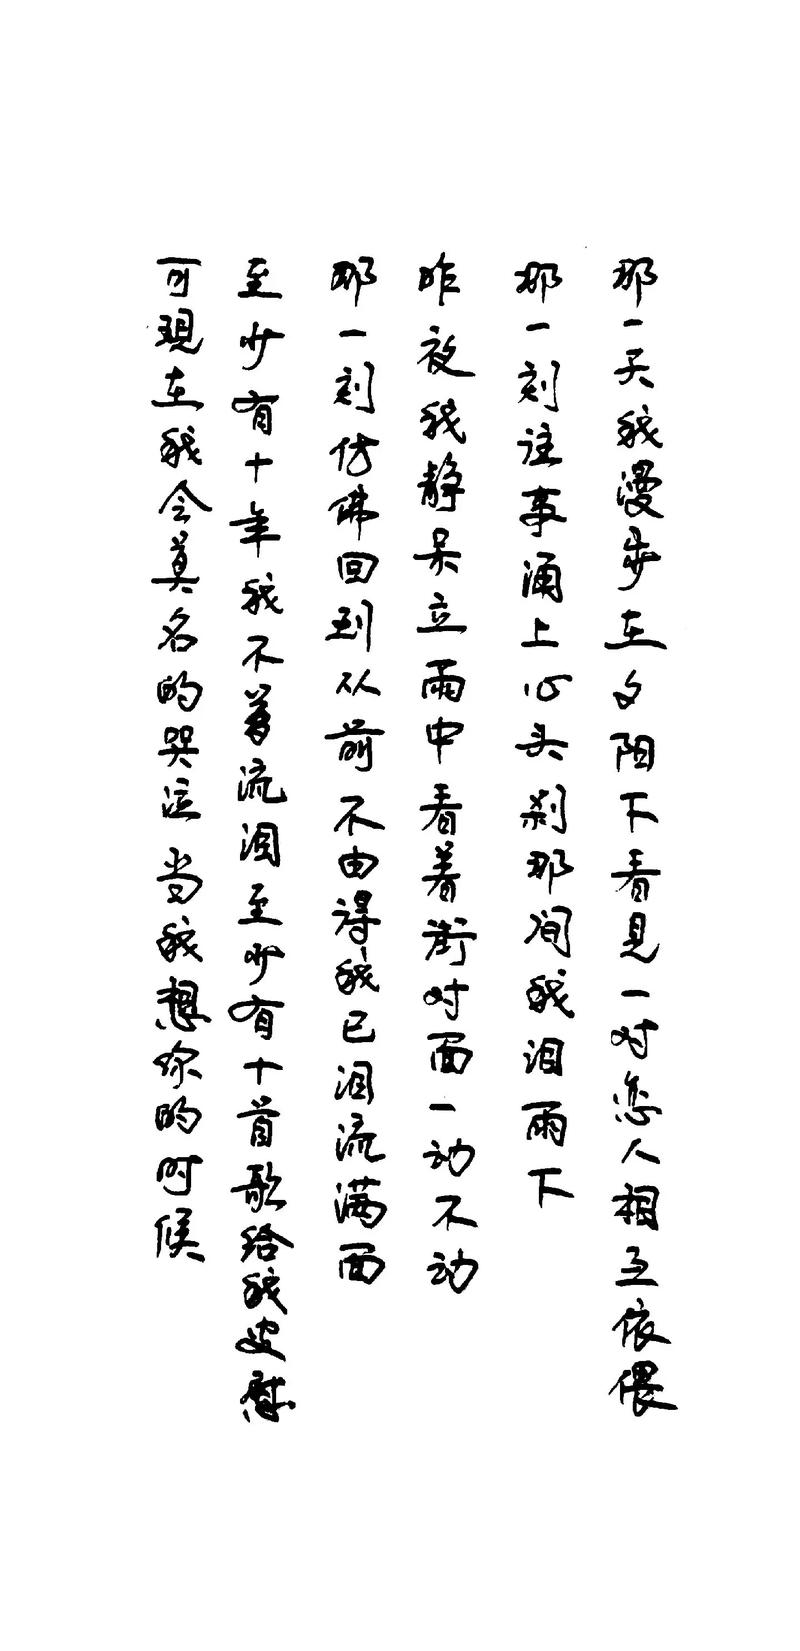 那一天我漫步在夕阳下看見一对恋人相互依偎
那一刻往事涌上心头刹那间我泪雨下
昨夜我静呆立雨中看着街对面一动不动
那一刻仿佛回到从前不由得我已泪流满面
至少有十年我不曾流泪至少有十首歌给我安慰
可現在我会莫名的哭泣当我想你的时候